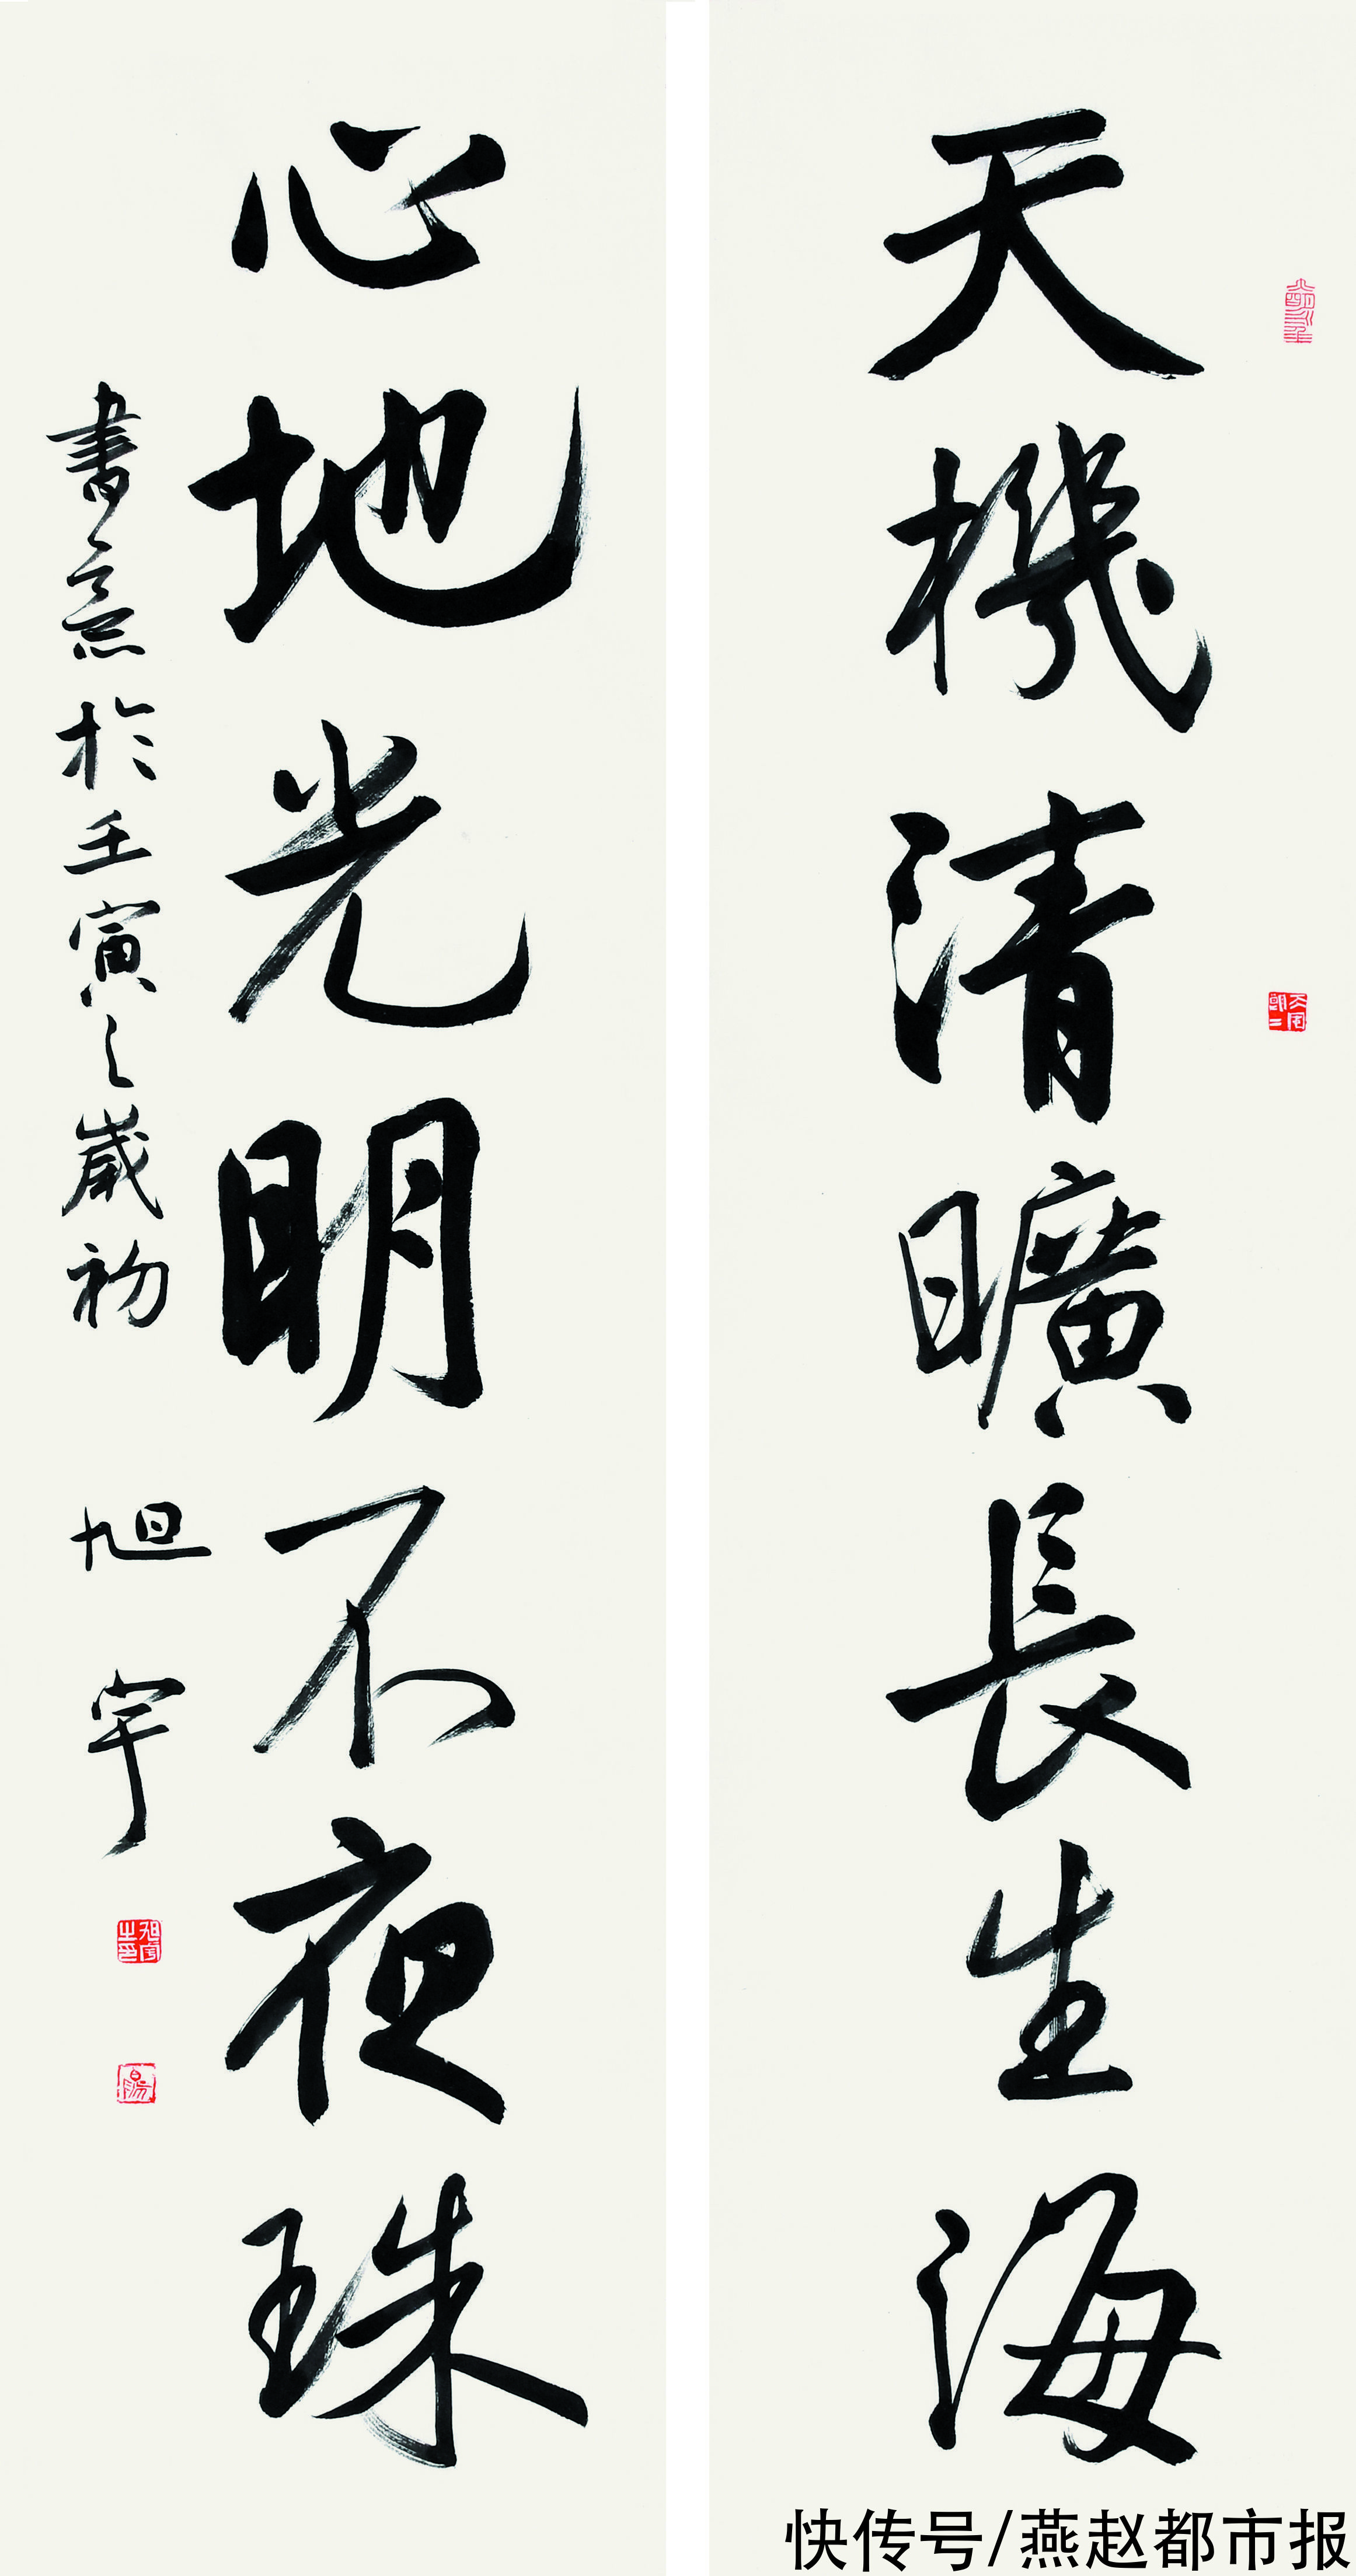 天機清曠長生海
心地光明不夜珠
書意於壬寅之歲初
旭宇
旭宇之印
快传号/燕赵都市报